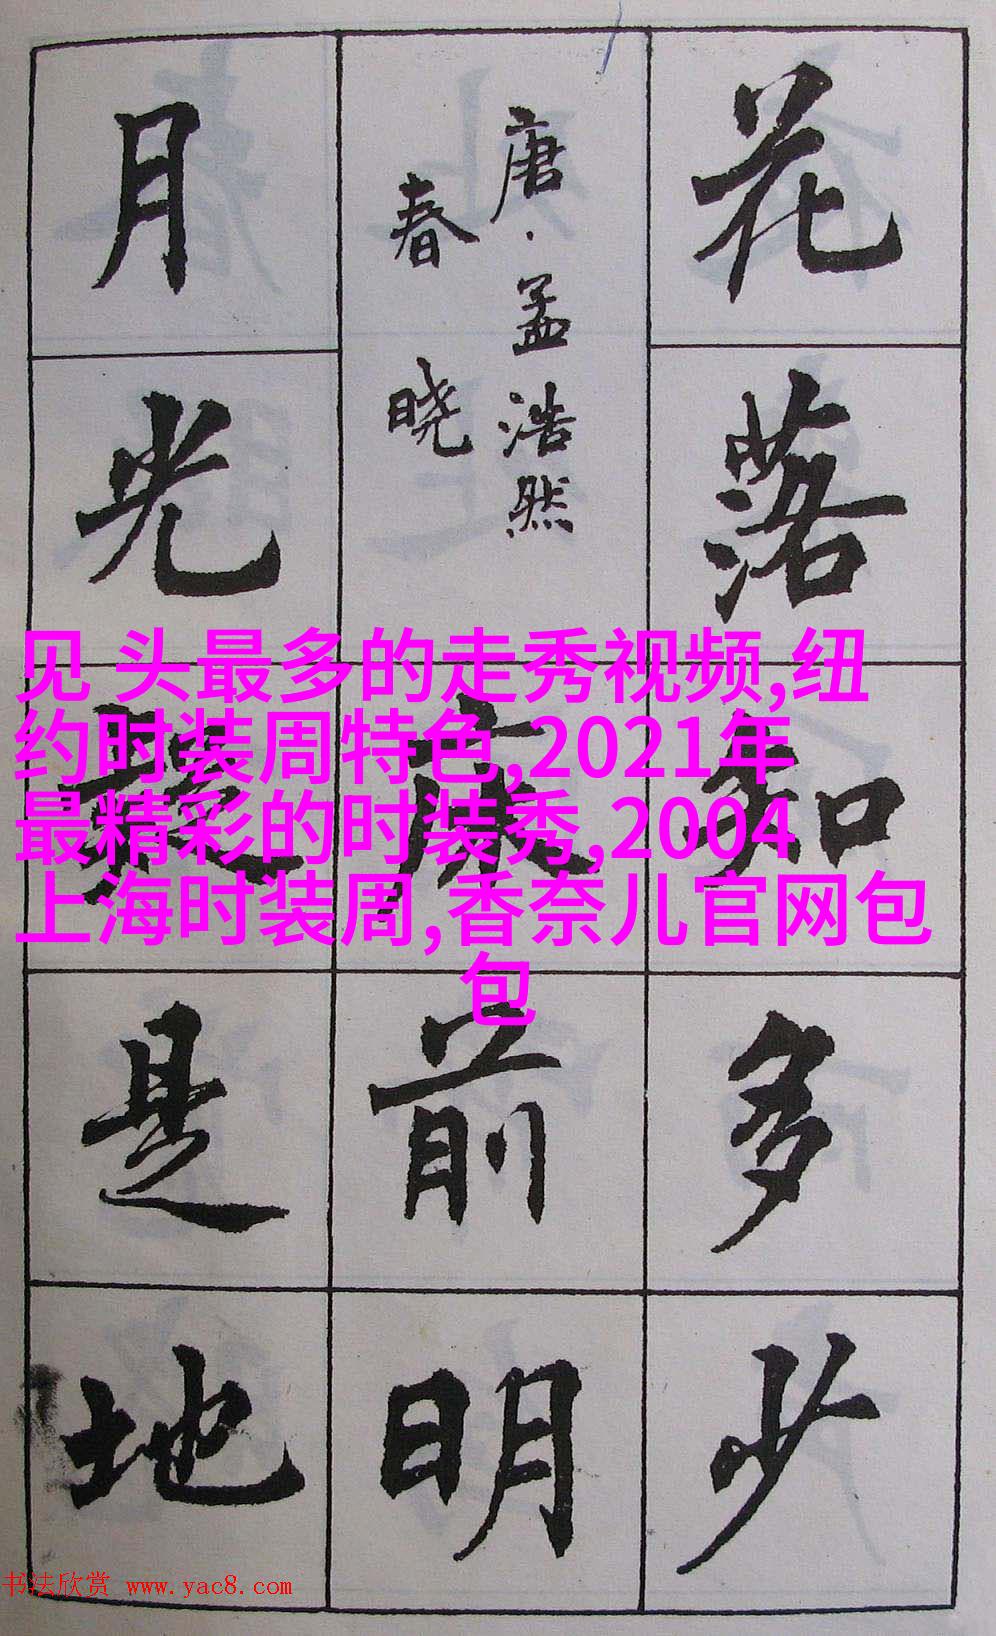 花落知多少
唐·孟浩然
春晓
床前明
月光疑是地
见 头最多的走秀视频,纽
约时装周特色,2021年
最精彩的时装秀,2004
上海时装周,香奈儿官网包
包
书法欣赏 www.yac8.com